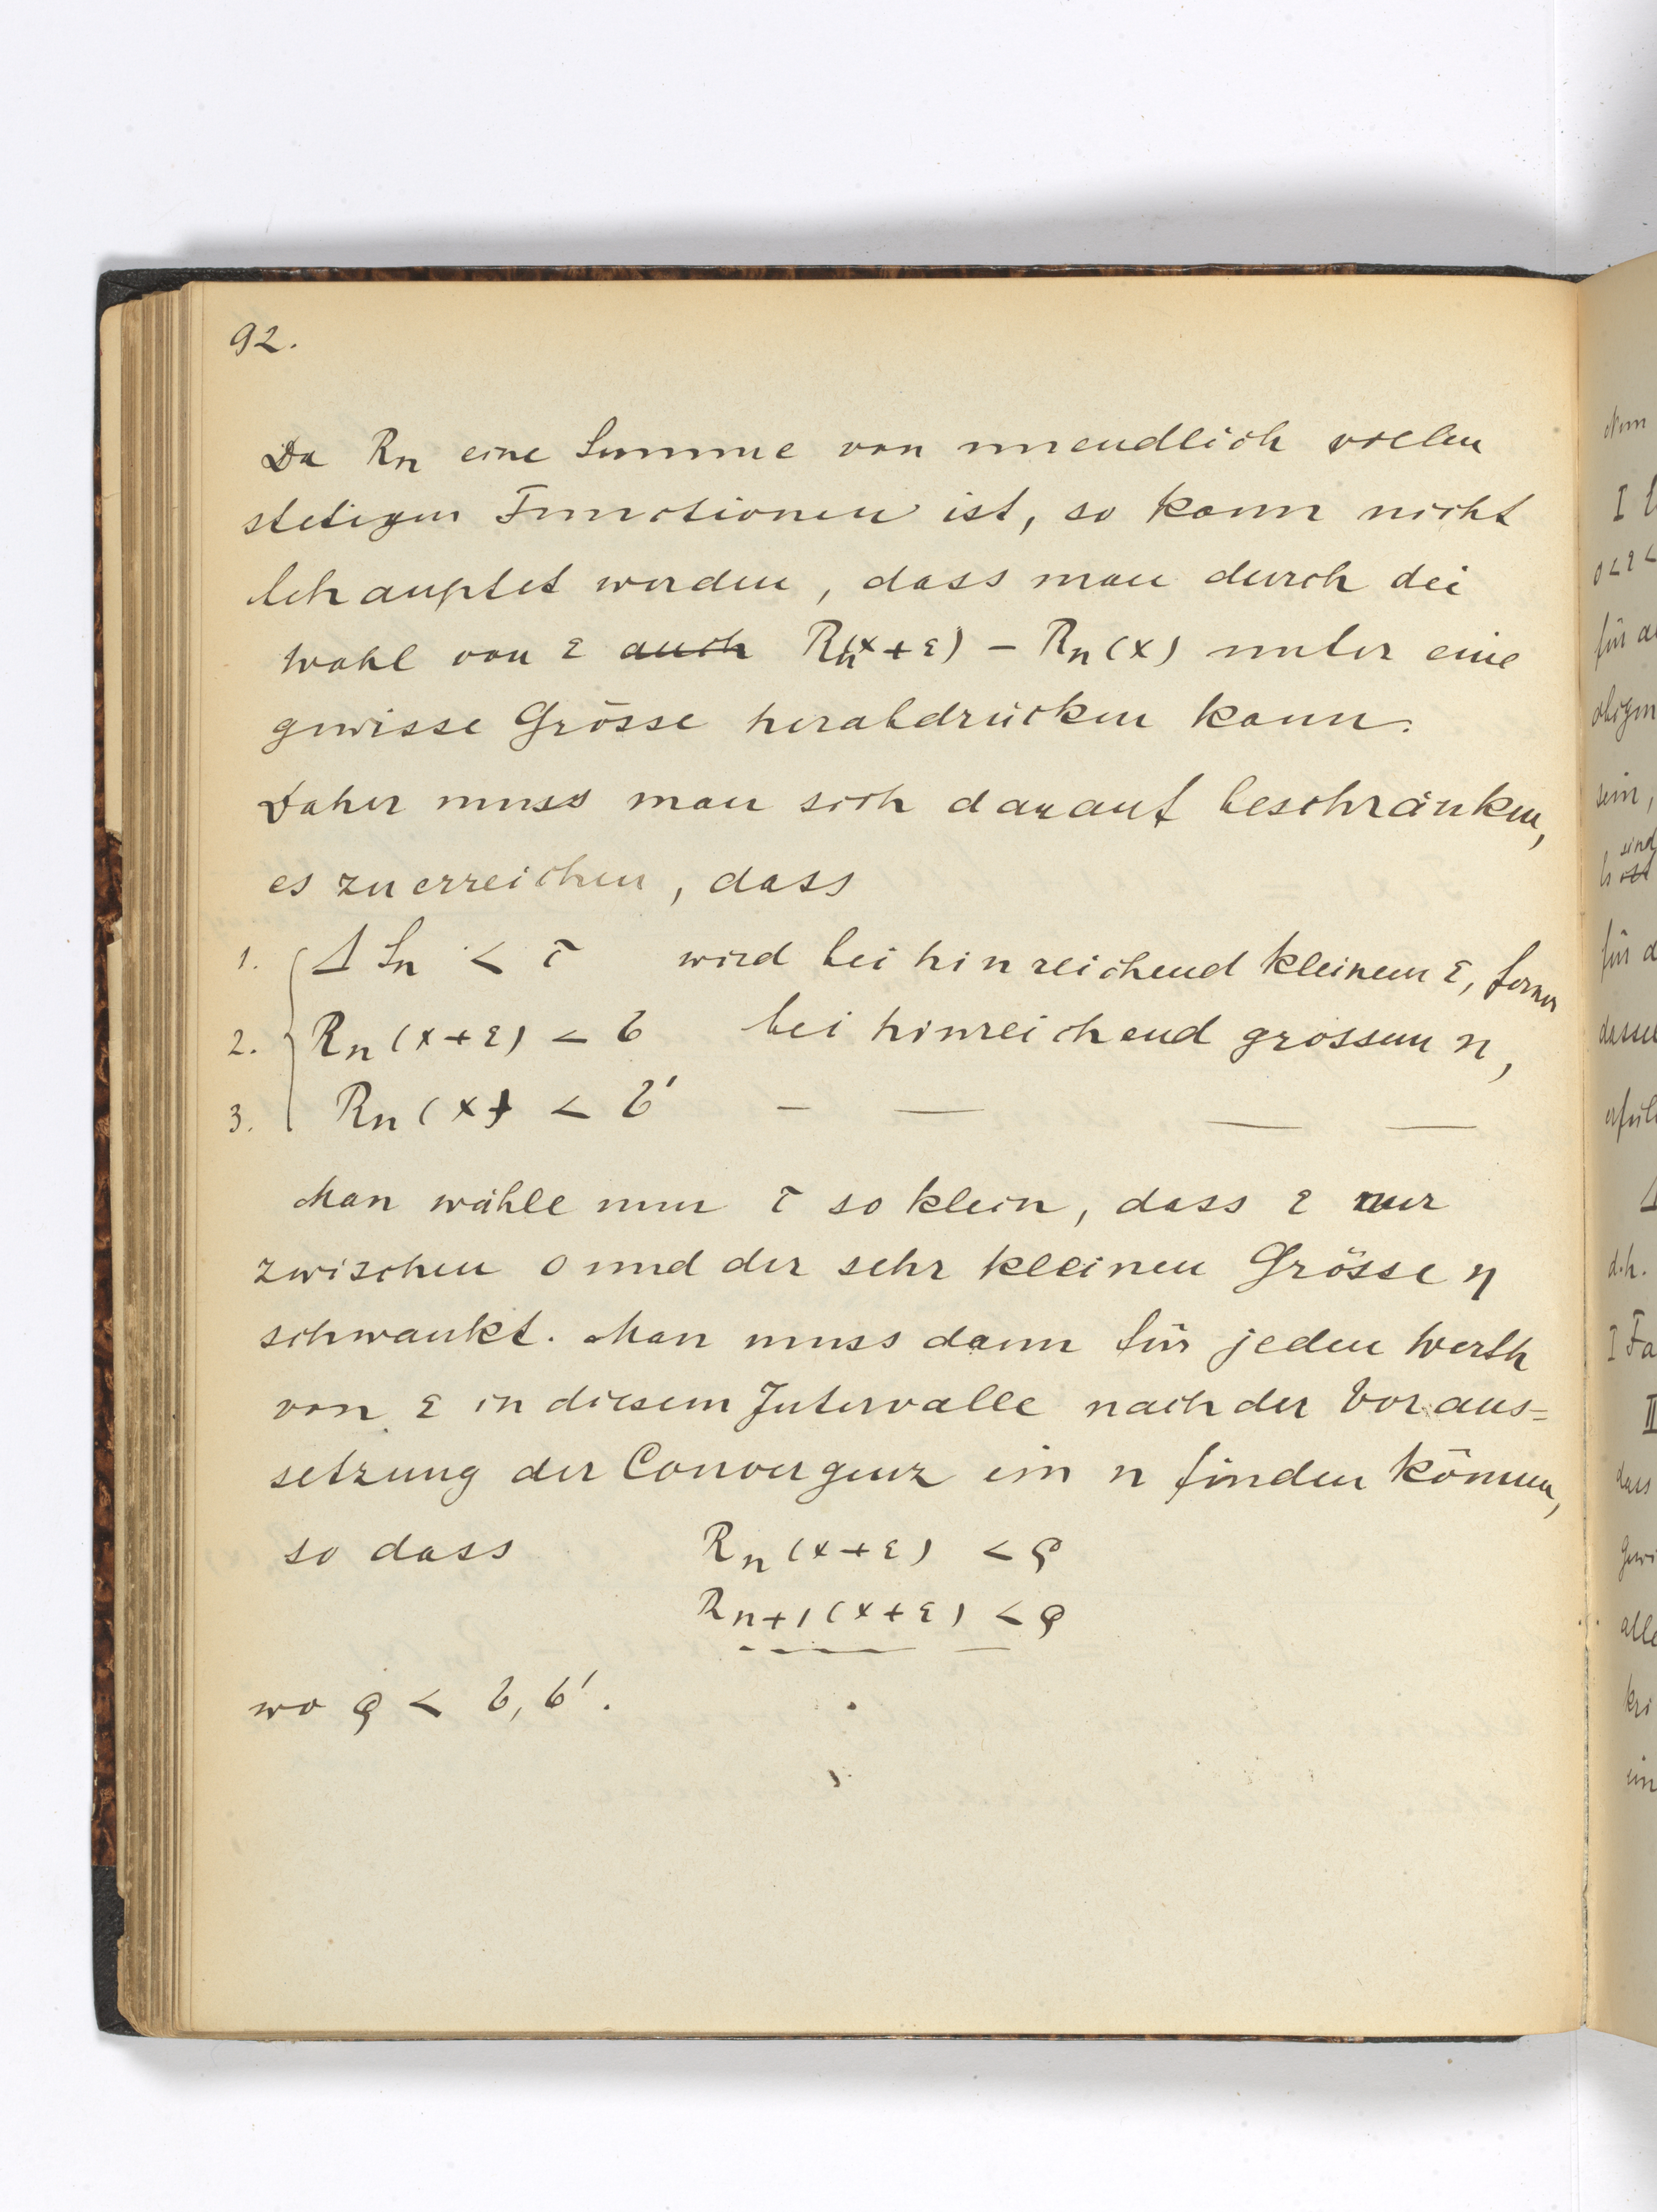 92.
Da Rn eine Summe von unendlich vielen
stetigen Functionen ist, so kann nicht
behauptet werden, dass man durch die
Wahl von ε ~~auch~~ Rn(x+ε) − Rn(x) unter eine
gewisse Grösse herabdrücken kann.
Daher muss man sich darauf beschränken,
es zu erreichen, dass
1. Δ Sn < τ wird bei hinreichend kleinem ε, ferner
2. Rn (x+ε) < σ bei hinreichend grossem n,
3. Rn (x) < σ' — — — —
Man wähle nun τ so klein, dass ε nur
zwischen 0 und der sehr kleinen Grösse η
schwankt. Man muss dann für jeden Werth
von ε in diesem Intervalle nach der Voraus=
setzung der Convergenz ein n finden können,
so dass Rn (x+ε) < ϱ
Rn+1 (x+ε) < ϱ
wo ϱ < σ, σ'.